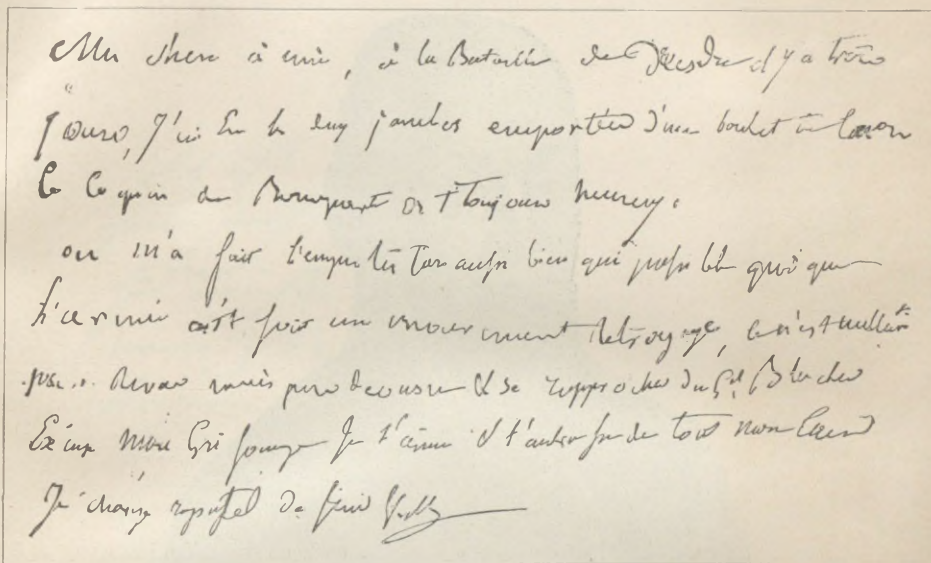 Ma chere amie, à la Bataille de Dresde il y a trois
jours, J'ai Eu les deux jambes emportées d'un boulet de canon
Ce Coquin de Bonaparte est Toujours heureux.
on m'a fait l'amputation aussi bien que possible quoique
l'armée ait fait un mouvement Retrograde, ce n'est nullement
par Revers mais par decousu & se rapprocher du Gal Blucher
Excuse Mon Grifonage Je t'aime & t'embrasse de tout mon Coeur
Je charge rapatel de finir